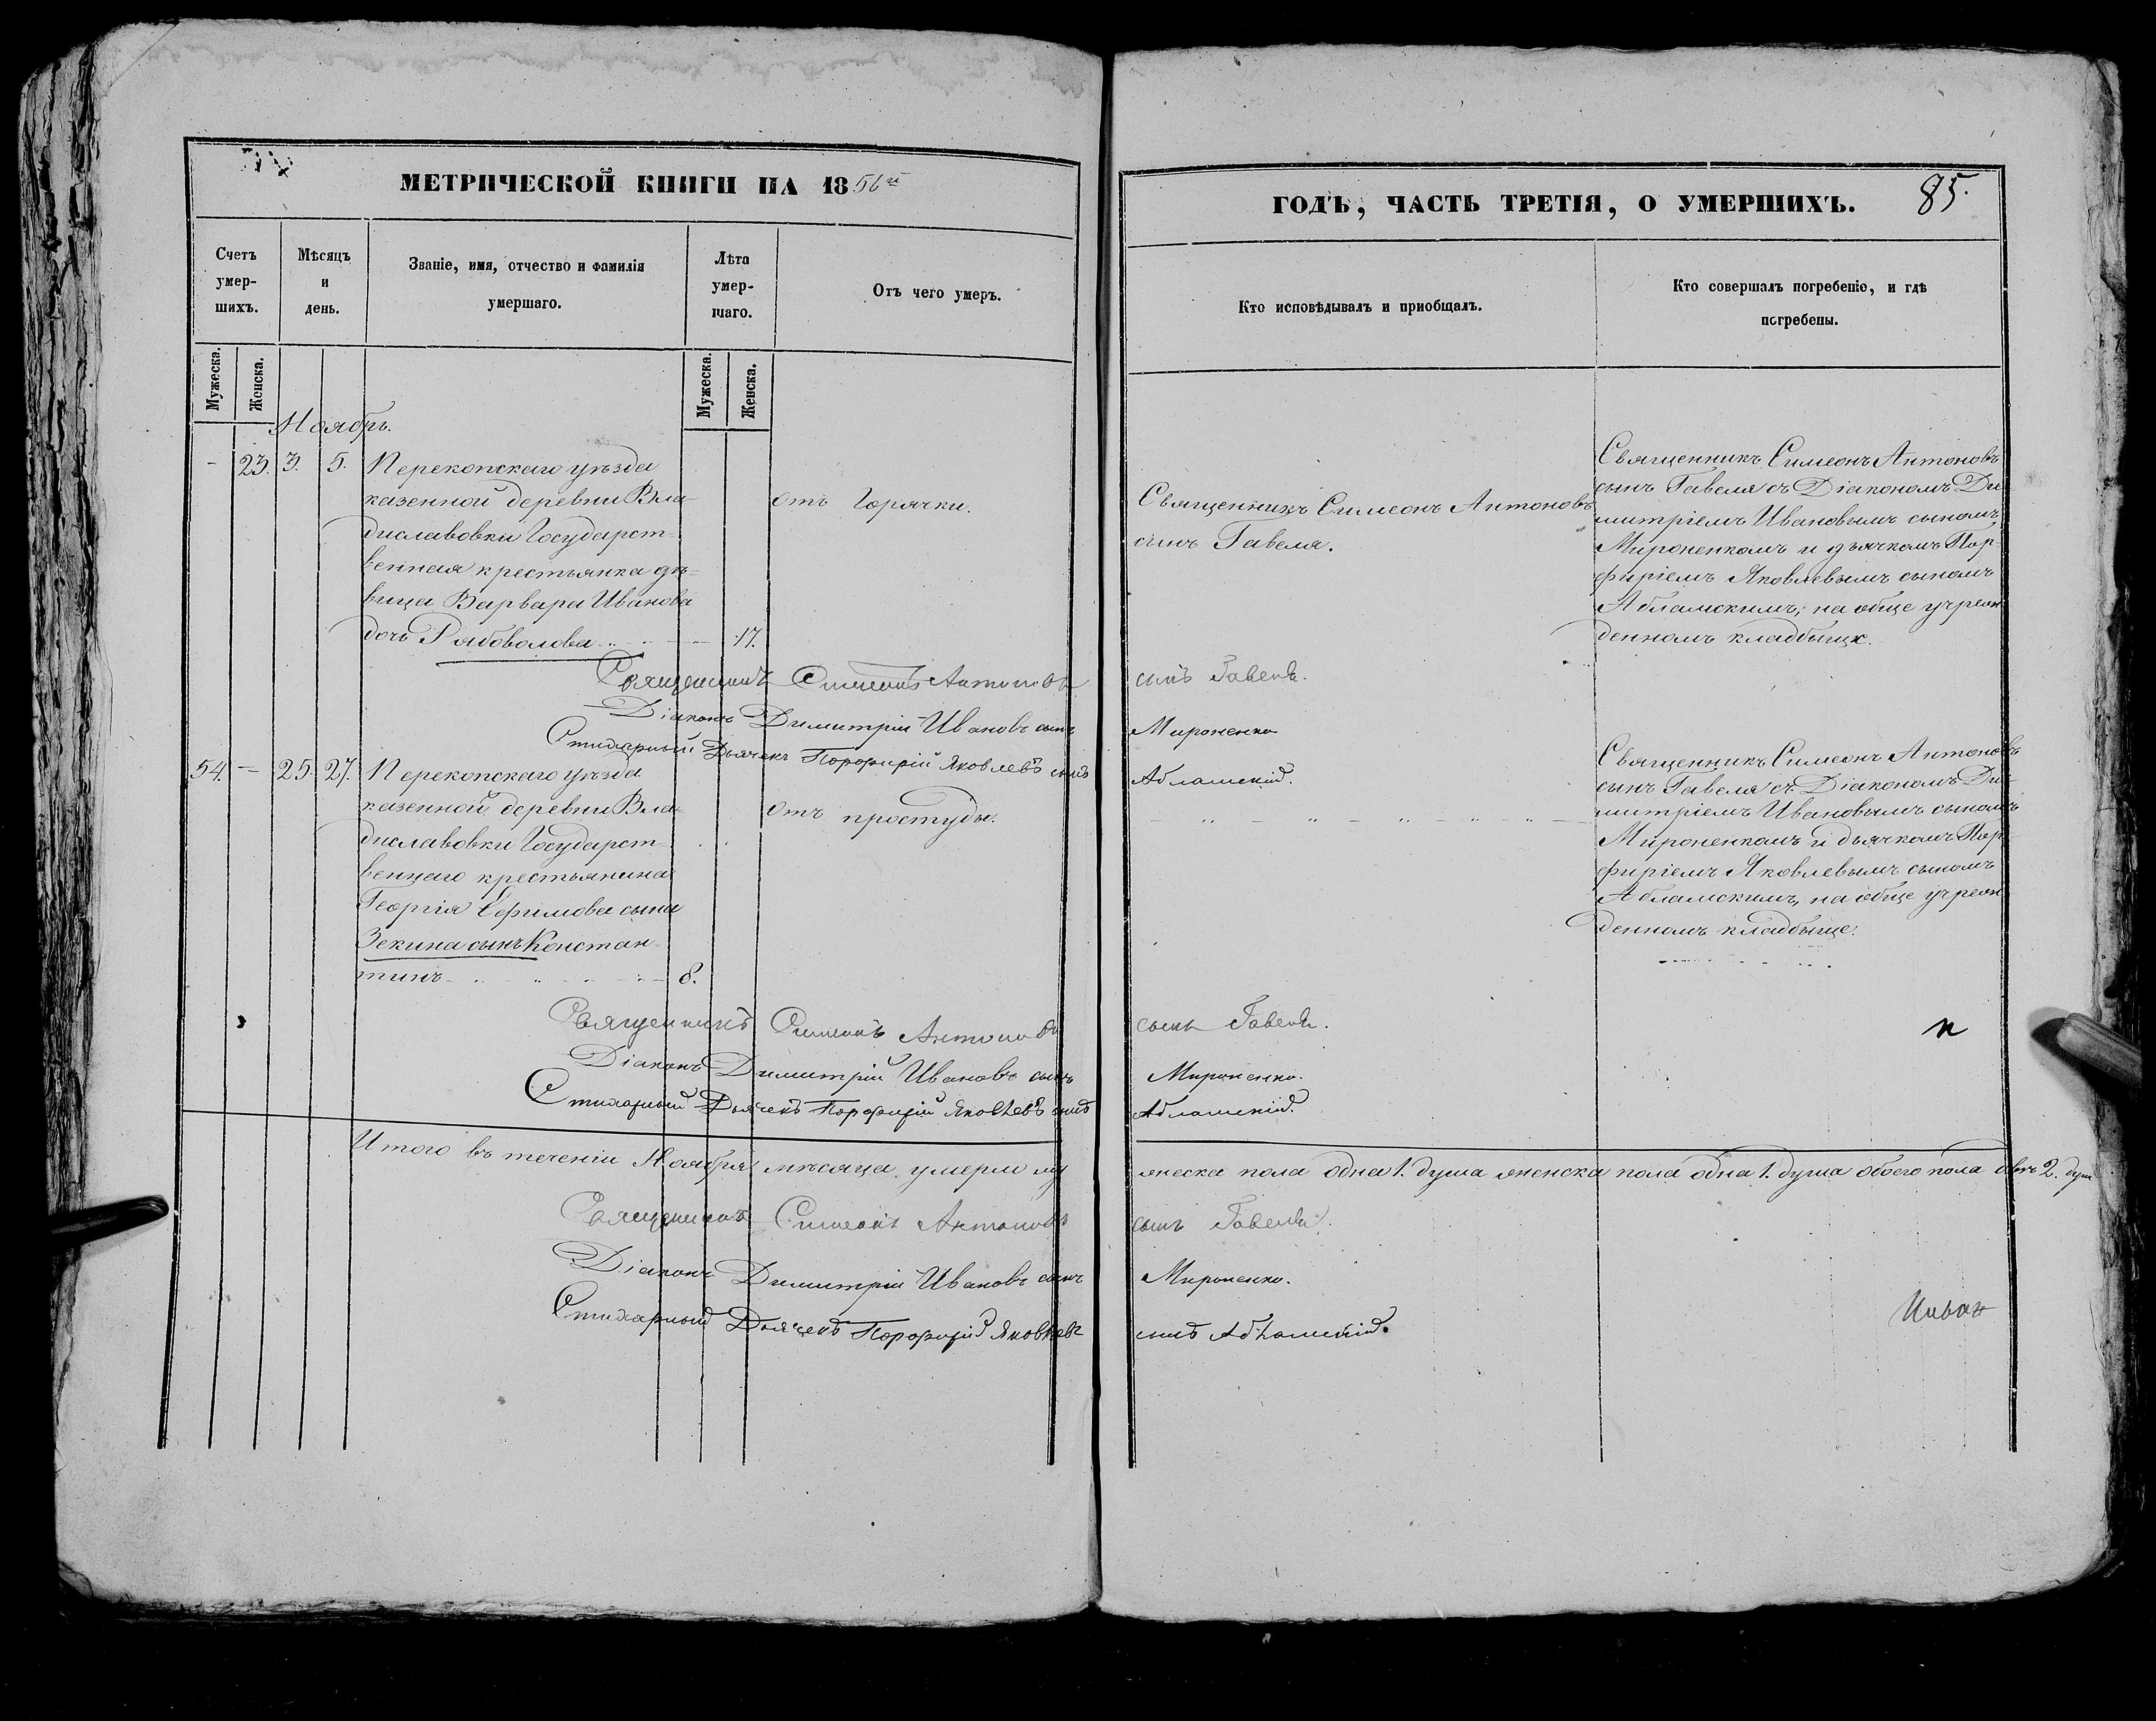 МЕТРИЧЕСКОЙ КНИГИ НА 1856й
Счетъ умер-шихъ.
Мѣсяцъ и день.
Званіе, имя, отчество и фамилія умершаго.
Лѣта умер-шаго.
Отъ чего умеръ.
Мужеска.
Женска.
Мужеска.
Женска.
Ноябрь.
- 23. 3. 5. Перекопскаго уѣзда
казенной деревни Вла-
диславовки Государст-
венная крестьянка дѣ-
вица Варвара Иванова
дочь Рябоволова 17.
отъ горячки.
Священникъ Симеонъ Антоновъ
Діаконъ Димитрій Ивановъ сынъ
Стихарный Дьячекъ Порфирій Яковлевъ сынъ
54. - 25. 27. Перекопскаго уѣзда
казенной деревни Вла-
диславовки Государст-
веннаго крестьянина
Георгія Ефимова сына
Зекина сынъ Констан-
тинъ 8.
отъ простуды.
Священникъ Симеонъ Антоновъ
Діаконъ Димитрій Ивановъ сынъ
Стихарный Дьячекъ Порфирій Яковлевъ сынъ
Итого въ теченіи Ноября мѣсяца умерли му
Священникъ Симеонъ Антоновъ
Діаконъ Димитрій Ивановъ сынъ
Стихарный Дьячекъ Порфирій Яковлевъ
ГОДЪ, ЧАСТЬ ТРЕТІЯ, О УМЕРШИХЪ.
85.
Кто исповѣдывалъ и приобщалъ.
Кто совершалъ погребеніе, и гдѣ погребены.
Священникъ Симеонъ Антоновъ
сынъ Гавеля.
Священникъ Симеонъ Антоновъ
сынъ Гавеля съ Діакономъ Ди-
митріемъ Ивановымъ сыномъ
Мироненкомъ и дьячкомъ Пор-
фиріемъ Яковлевымъ сыномъ
Абламскимъ, на обще учреж
денномъ кладбищѣ.
сынъ Гавеля.
Мироненко
Абламскій.
Священникъ Симеонъ Антоновъ
сынъ Гавеля съ Діакономъ Ди-
митріемъ Ивановымъ сыномъ
Мироненкомъ и дьячкомъ Пор-
фиріемъ Яковлевымъ сыномъ
Абламскимъ, на обще учреж
денномъ кладбище.
сынъ Гавеля.
Мироненко.
Абламскій.
жеска пола одна 1. душа женска пола одна 1. душа обоего пола двѣ 2. душ
сынъ Гавеля.
Мироненко.
сынъ Абламскій.